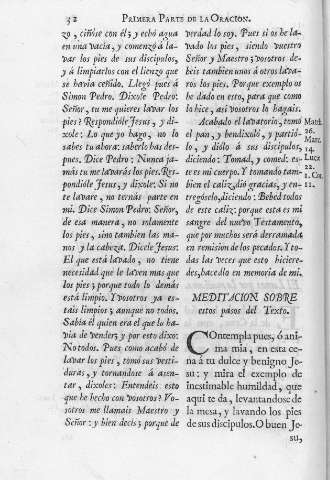 32 PRIMERA PARTE DE LA ORACION.
zo, ciñóse con él; y echó agua
en una vacía, y comenzó á la-
var los pies de sus discipulos,
y á limpiarlos con el lienzo que
se havia ceñido. Llegó pues á
Simon Pedro. Dixole Pedro:
Señor, tu me quieres lavar los
pies? Respondióle Jesus, y di-
xole: Lo que yo hago, no lo
sabes tu ahora: saberlo has des-
pues. Dice Pedro: Nunca ja-
más tu me lavarás los pies. Res-
pondióle Jesus, y dixole: Si no
te lavare, no ternás parte en
mi. Dice Simon Pedro: Señor,
de esa manera, no solamente
los pies, sino tambien las ma-
nos y la cabeza. Dicele Jesus:
El que está lavado, no tiene
necesidad que le laven mas que
los pies; porque todo lo demás
está limpio. Y vosotros ya es-
tais limpios; aunque no todos.
Sabía él quien era el que lo ha-
vía de vender; y por esto dixo:
No todos. Pues como acabó de
lavar los pies, tomó sus vesti-
duras, y tornandose á asen-
tar, dixoles: Entendeis esto
que he hecho con vosotros? Vo-
sotros me llamais Maestro y
Señor: y bien decis; porque de
verdad lo soy. Pues si os he la-
vado los pies, siendo vuestro
Señor y Maestro; vosotros de-
beis tambien unos á otros lava-
ros los pies. Porque exemplo os
he dado en esto, para que como
lo hice, asi vosotros lo hagais.
Acabado el lavatorio, tomó
el pan, y bendixolo, y partió-
lo, y diólo á sus discipulos,
diciendo: Tomad, y comed: es-
te es mi cuerpo. Y tomando tam-
bien el caliz, dió gracias, y en-
tregóselo, diciendo: Bebed todos
de este caliz: porque esta es mi
sangre del nuevo Testamento,
que por muchos será derramada
en remision de los pecados. Y to-
das las veces que esto hiciere-
des, hacedlo en memoria de mi.
Matt.
26.
Marc.
14.
Lucæ
22.
1. Cor.
11.
MEDITACION SOBRE
estos pasos del Texto.
COntempla pues, ó ani-
ma mia, en esta ce-
na á tu dulce y benigno Je-
su: y mira el exemplo de
inestimable humildad, que
aqui te da, levantandose de
la mesa, y lavando los pies
de sus discipulos. O buen Je-
su,